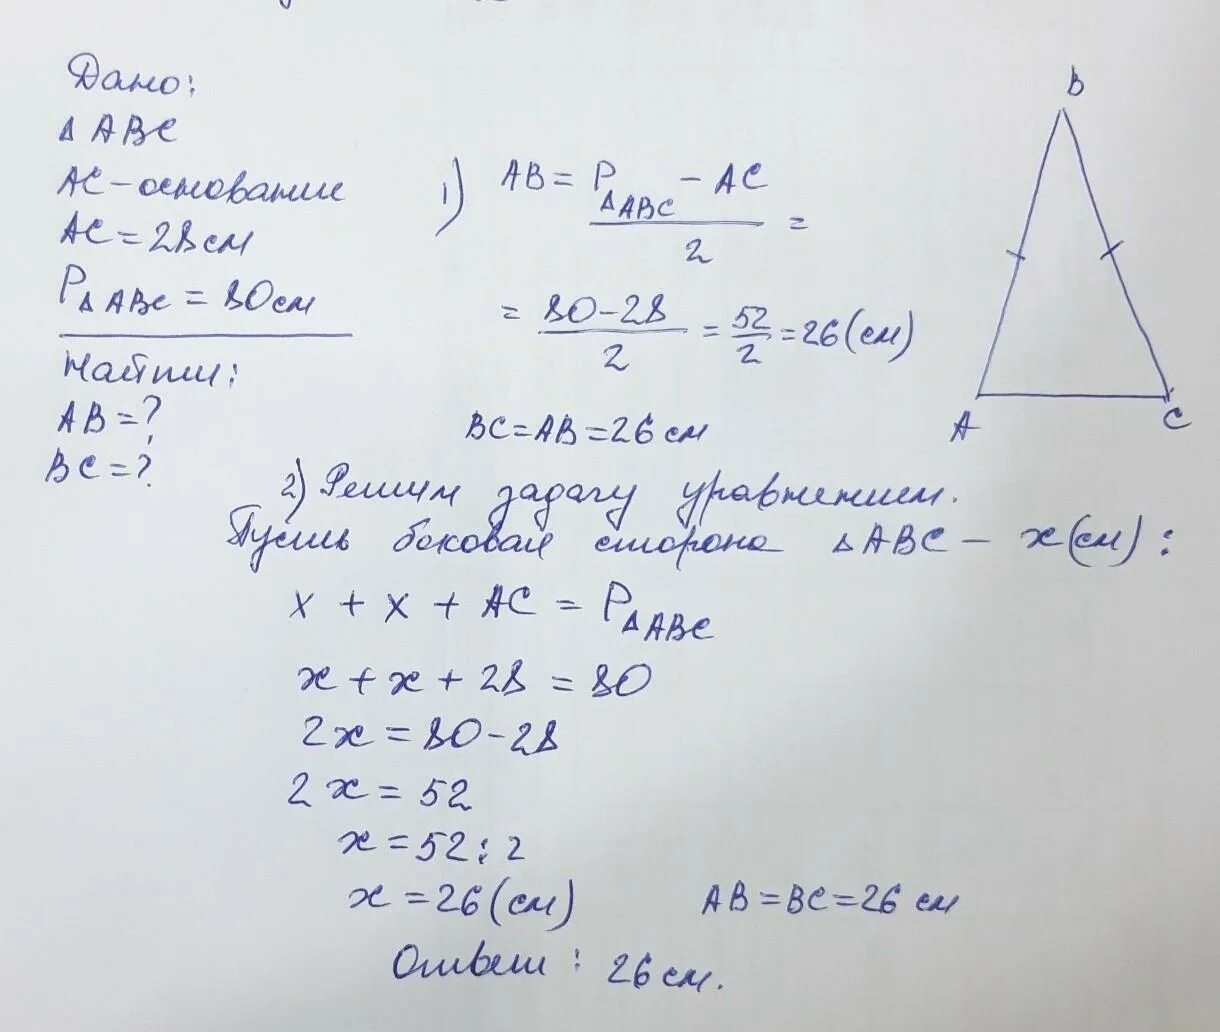 Дано:
△ ABC
AC - основание
AC = 28 см
P△ABC = 80 см
Найти:
AB = ?
BC = ?
1) AB = (P△ABC - AC) / 2 =
= (80 - 28) / 2 = 52/2 = 26 (см)
BC = AB = 26 см
B
A
C
2) Решим задачу уравнением.
Пусть боковая сторона △ABC - x (см):
x + x + AC = P△ABC
x + x + 28 = 80
2x = 80 - 28
2x = 52
x = 52 : 2
x = 26 (см) AB = BC = 26 см
Ответ: 26 см.